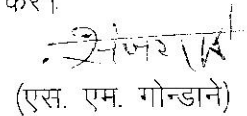 करें।
(एस. एम. गोन्डाने)